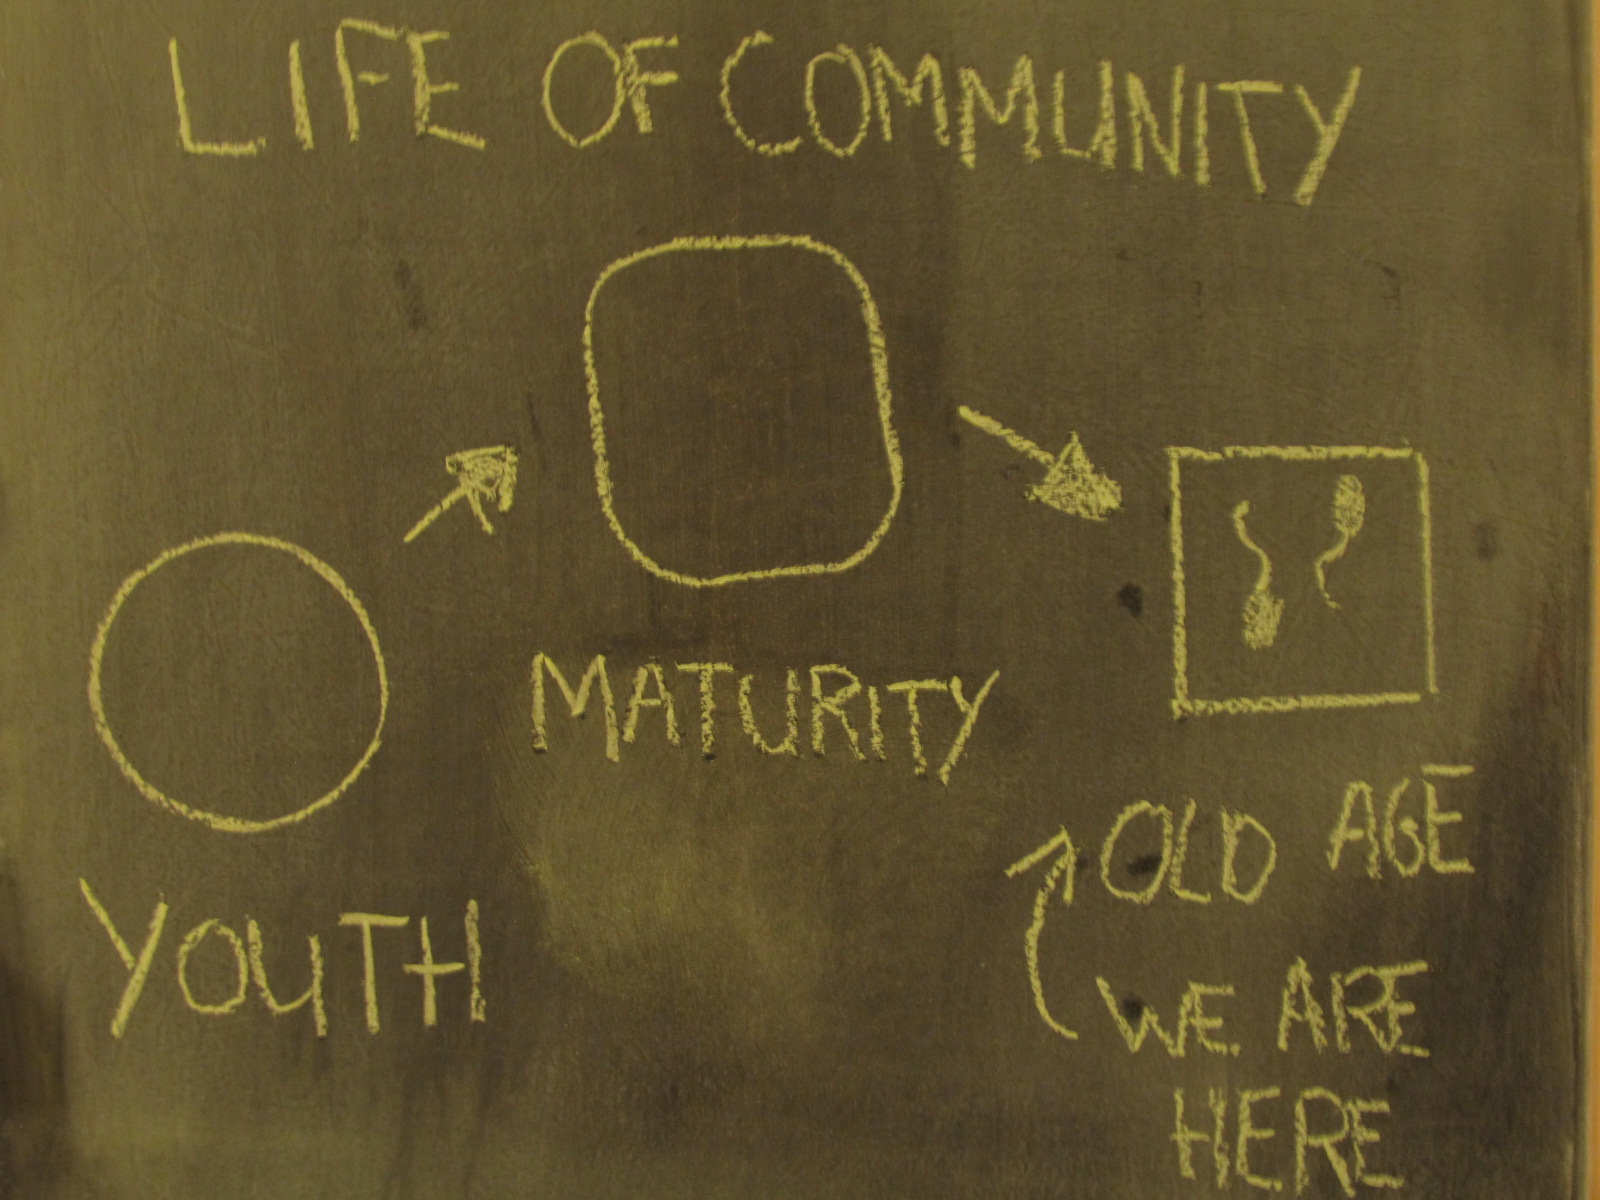 LIFE OF COMMUNITY
MATURITY
OLD AGE
YOUTH
WE ARE
HERE